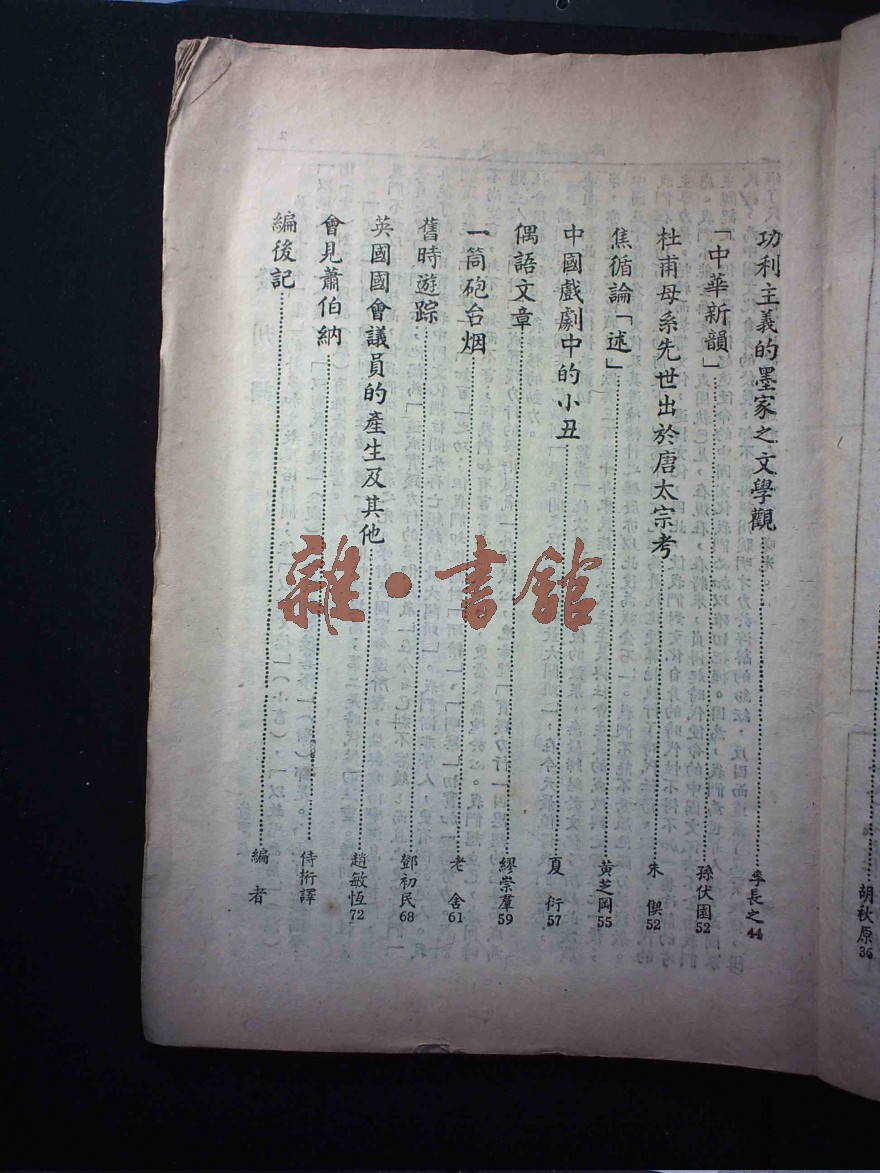 胡秋原36
功利主義的墨家之文學觀……李長之44
「中華新韻」……孫伏園52
杜甫母系先世出於唐太宗考……朱偰52
焦循論「述」……黃芝岡55
中國戲劇中的小丑……夏衍57
偶語文章……繆崇羣59
一筒砲台烟……老舍61
舊時遊踪……鄧初民68
英國國會議員的產生及其他……趙敏恆72
會見蕭伯納……侍桁譯
編後記……編者
雜·書館